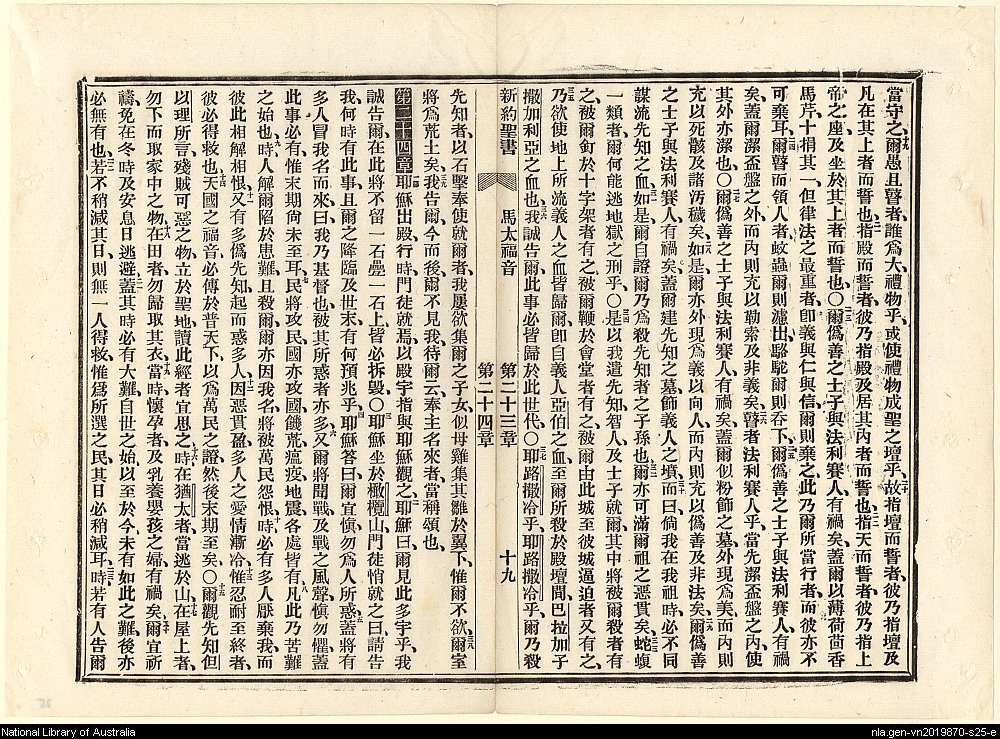 當守之爾愚且瞽者誰爲大禮物乎或使禮物成聖之壇乎故指壇而誓者彼乃指壇及
凡在其上者而誓也指殿而誓者彼乃指殿及居其內者而誓也指天而誓者彼乃指上
帝之座及坐於其上者而誓也〇爾僞善之士子與法利賽人有禍矣蓋爾以薄荷茴香
馬芹十捐其一但律法之最重者卽義與仁與信爾則棄之此乃爾所當行者而彼亦不
可棄耳爾瞽而領人者蚊蟲爾則濾出駱駝爾則吞下爾僞善之士子與法利賽人有禍
矣蓋爾潔盃盤之外而內則充以勒索及非義矣瞽者法利賽人乎當先潔盃盤之內使
其外亦潔也〇爾僞善之士子與法利賽人有禍矣蓋爾似粉飾之墓外現爲美而內則
充以死骸及諸汚穢矣如是爾亦外現爲義以向人而內則充以僞善及非法矣爾僞善
之士子與法利賽人有禍矣蓋爾建先知之墓飾義人之墳而曰倘我在我祖時必不同
謀流先知之血如是爾自證爾乃爲殺先知者之子孫也爾亦可滿爾祖之惡貫矣蛇蝮
一類者爾何能逃地獄之刑乎〇是以我遣先知智人及士子就爾其中將被爾殺者有
之被爾釘於十字架者有之被爾鞭於會堂者有之被爾由此城至彼城逼迫者又有之
乃欲使地上所流義人之血皆歸爾卽自義人亞伯之血至爾所殺於殿壇間巴拉加子
撒加利亞之血也我誠告爾此事必皆歸於此世代〇耶路撒冷乎耶路撒冷乎爾乃殺
新約聖書 馬太福音 第二十三章 第二十四章 十九
先知者以石擊奉使就爾者我屢欲集爾之子女似母雞集其雛於翼下惟爾不欲爾室
將爲荒土矣我告爾今而後爾不見我待爾云奉主名來者當稱頌也
第二十四章耶穌出殿行時門徒就焉以殿宇指與耶穌觀之耶穌曰爾見此多宇乎我
誠告爾在此將不留一石疊一石上皆必拆毀〇耶穌坐於橄欖山門徒悄就之曰請告
我何時有此事且爾之降臨及世末有何預兆乎耶穌答曰爾宜愼勿爲人所惑蓋將有
多人冒我名而來曰我乃基督也被其所惑者亦多又爾將聞戰及戰之風聲愼勿懼蓋
此事必有惟末期尙未至耳民將攻民國亦攻國饑荒瘟疫地震各處皆有凡此乃苦難
之始也時人解爾陷於患難且殺爾爾亦因我名將被萬民怨恨時必有多人厭棄我而
彼此相解相恨又有多僞先知起而惑多人因惡貫盈多人之愛情漸冷惟忍耐至終者
彼必得救也天國之福音必傳於普天下以爲萬民之證然後末期至矣〇爾觀先知但
以理所言殘賊可惡之物立於聖地讀此經者宜思之時在猶太者當逃於山在屋上者
勿下而取家中之物在田者勿歸取其衣當時懷孕者及乳養嬰孩之婦有禍矣爾宜祈
禱免在冬時及安息日逃避蓋其時必有大難自世之始以至於今未有如此之難後亦
必無有也若不稍減其日則無一人得救惟爲所選之民其日必稍減耳時若有人告爾
National Library of Australia
nla.gen-vn2019870-s25-e